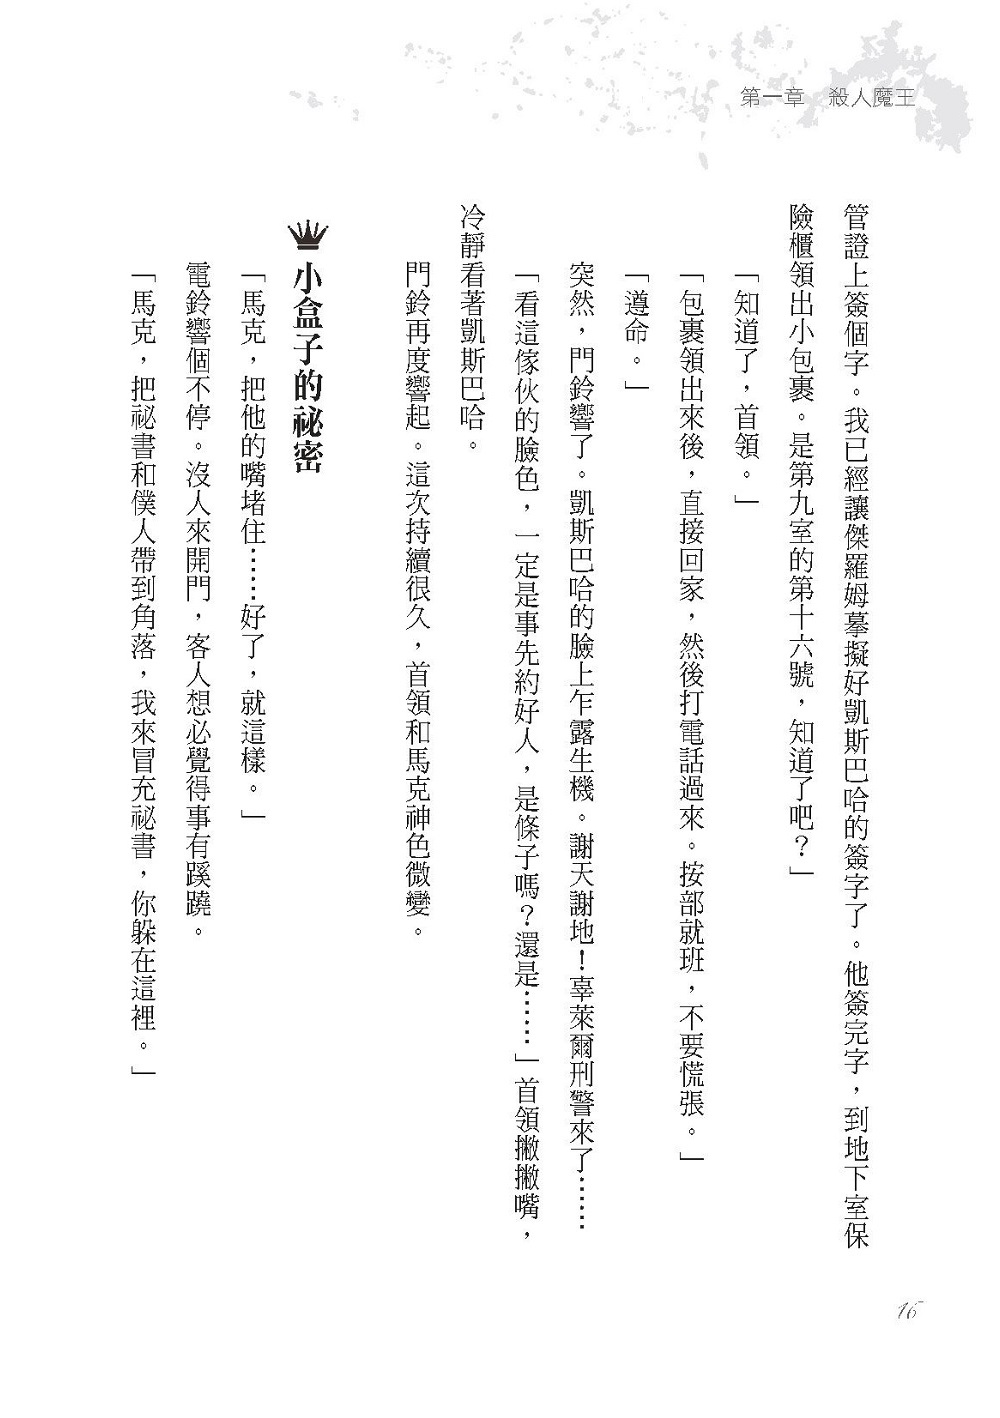 第一章　殺人魔王
管證上簽個字。我已經讓傑羅姆摹擬好凱斯巴哈的簽字了。他簽完字，到地下室保
險櫃領出小包裹。是第九室的第十六號，知道了吧？」
「知道了，首領。」
「包裹領出來後，直接回家，然後打電話過來。按部就班，不要慌張。」
「遵命。」
突然，門鈴響了。凱斯巴哈的臉上乍露生機。謝天謝地！辜萊爾刑警來了……
「看這傢伙的臉色，一定是事先約好人，是條子嗎？還是……」首領撇撇嘴，
冷靜看著凱斯巴哈。
門鈴再度響起。這次持續很久，首領和馬克神色微變。
小盒子的祕密
「馬克，把他的嘴堵住……好了，就這樣。」
電鈴響個不停。沒人來開門，客人想必覺得事有蹊蹺。
「馬克，把祕書和僕人帶到角落，我來冒充祕書，你躲在這裡。」
16